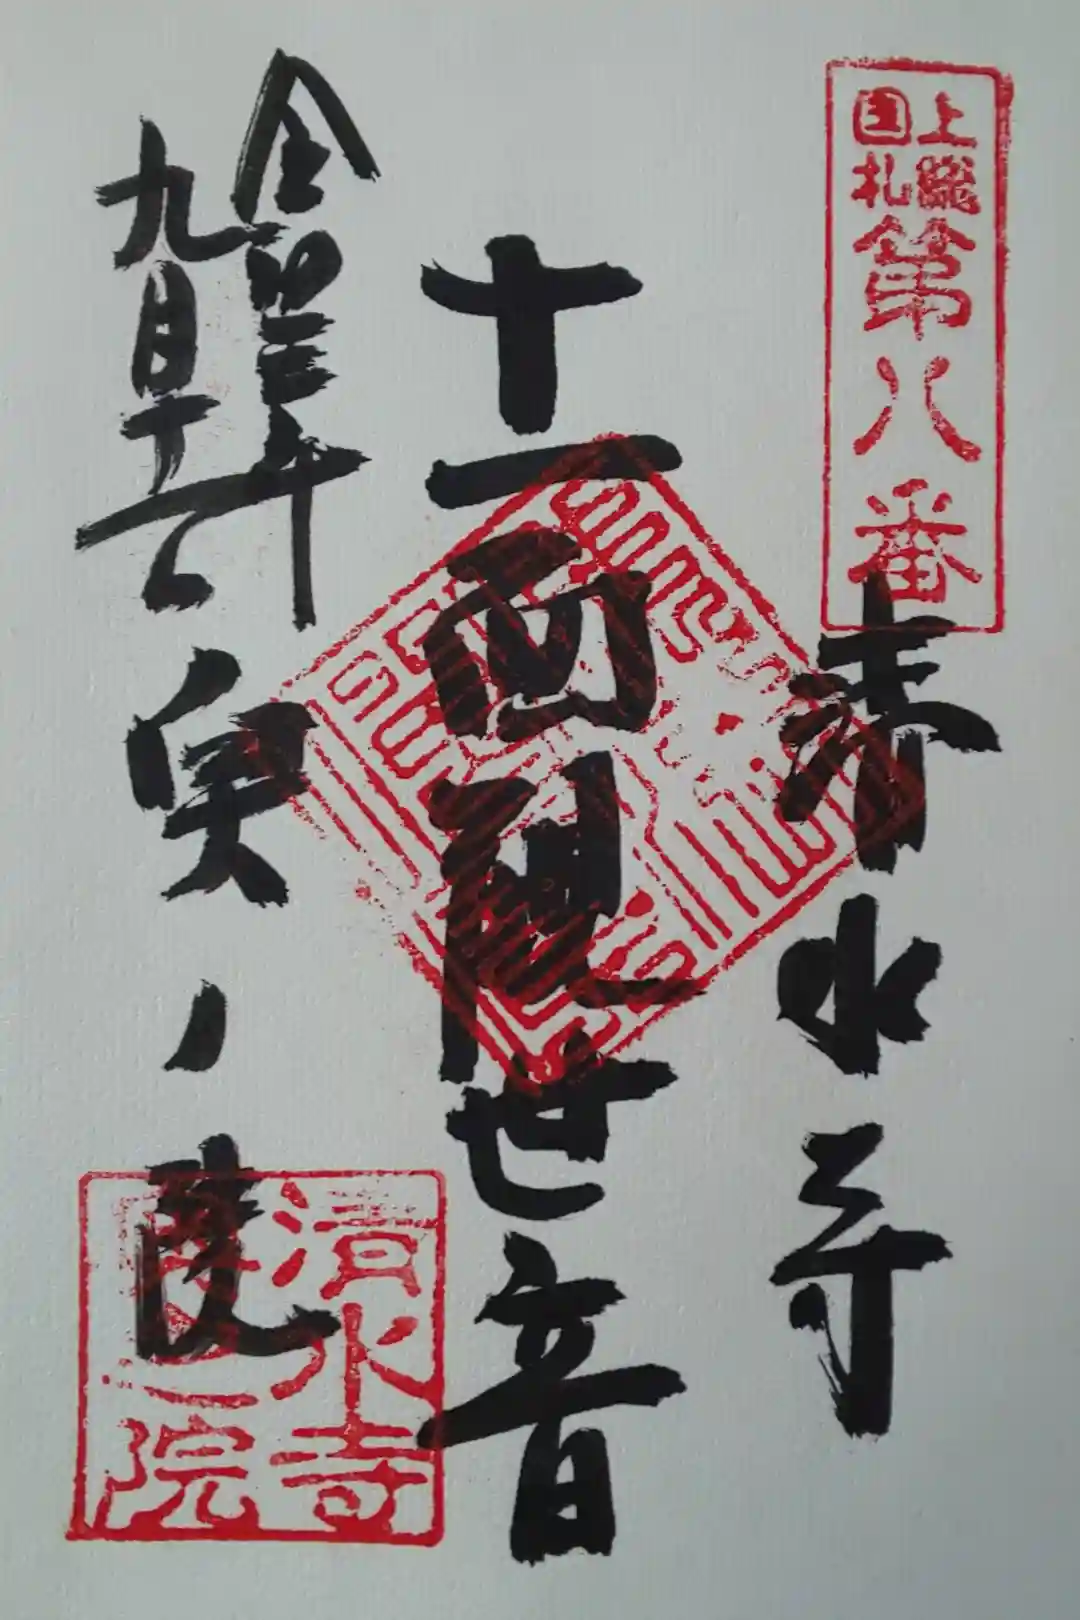 上総
国札
第八番
清水寺
十一面観世音
令和三年
九月十六
奥ノ院
清水寺
奥之院